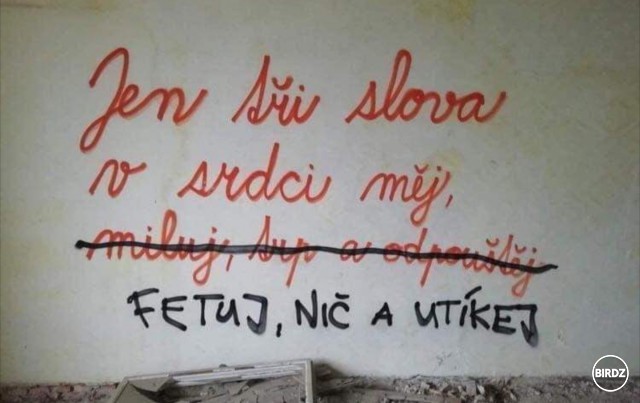 Jen tři slova
v srdci měj,
miluj, trp a odpouštěj
FETUJ, NIČ A UTÍKEJ
BIRDZ